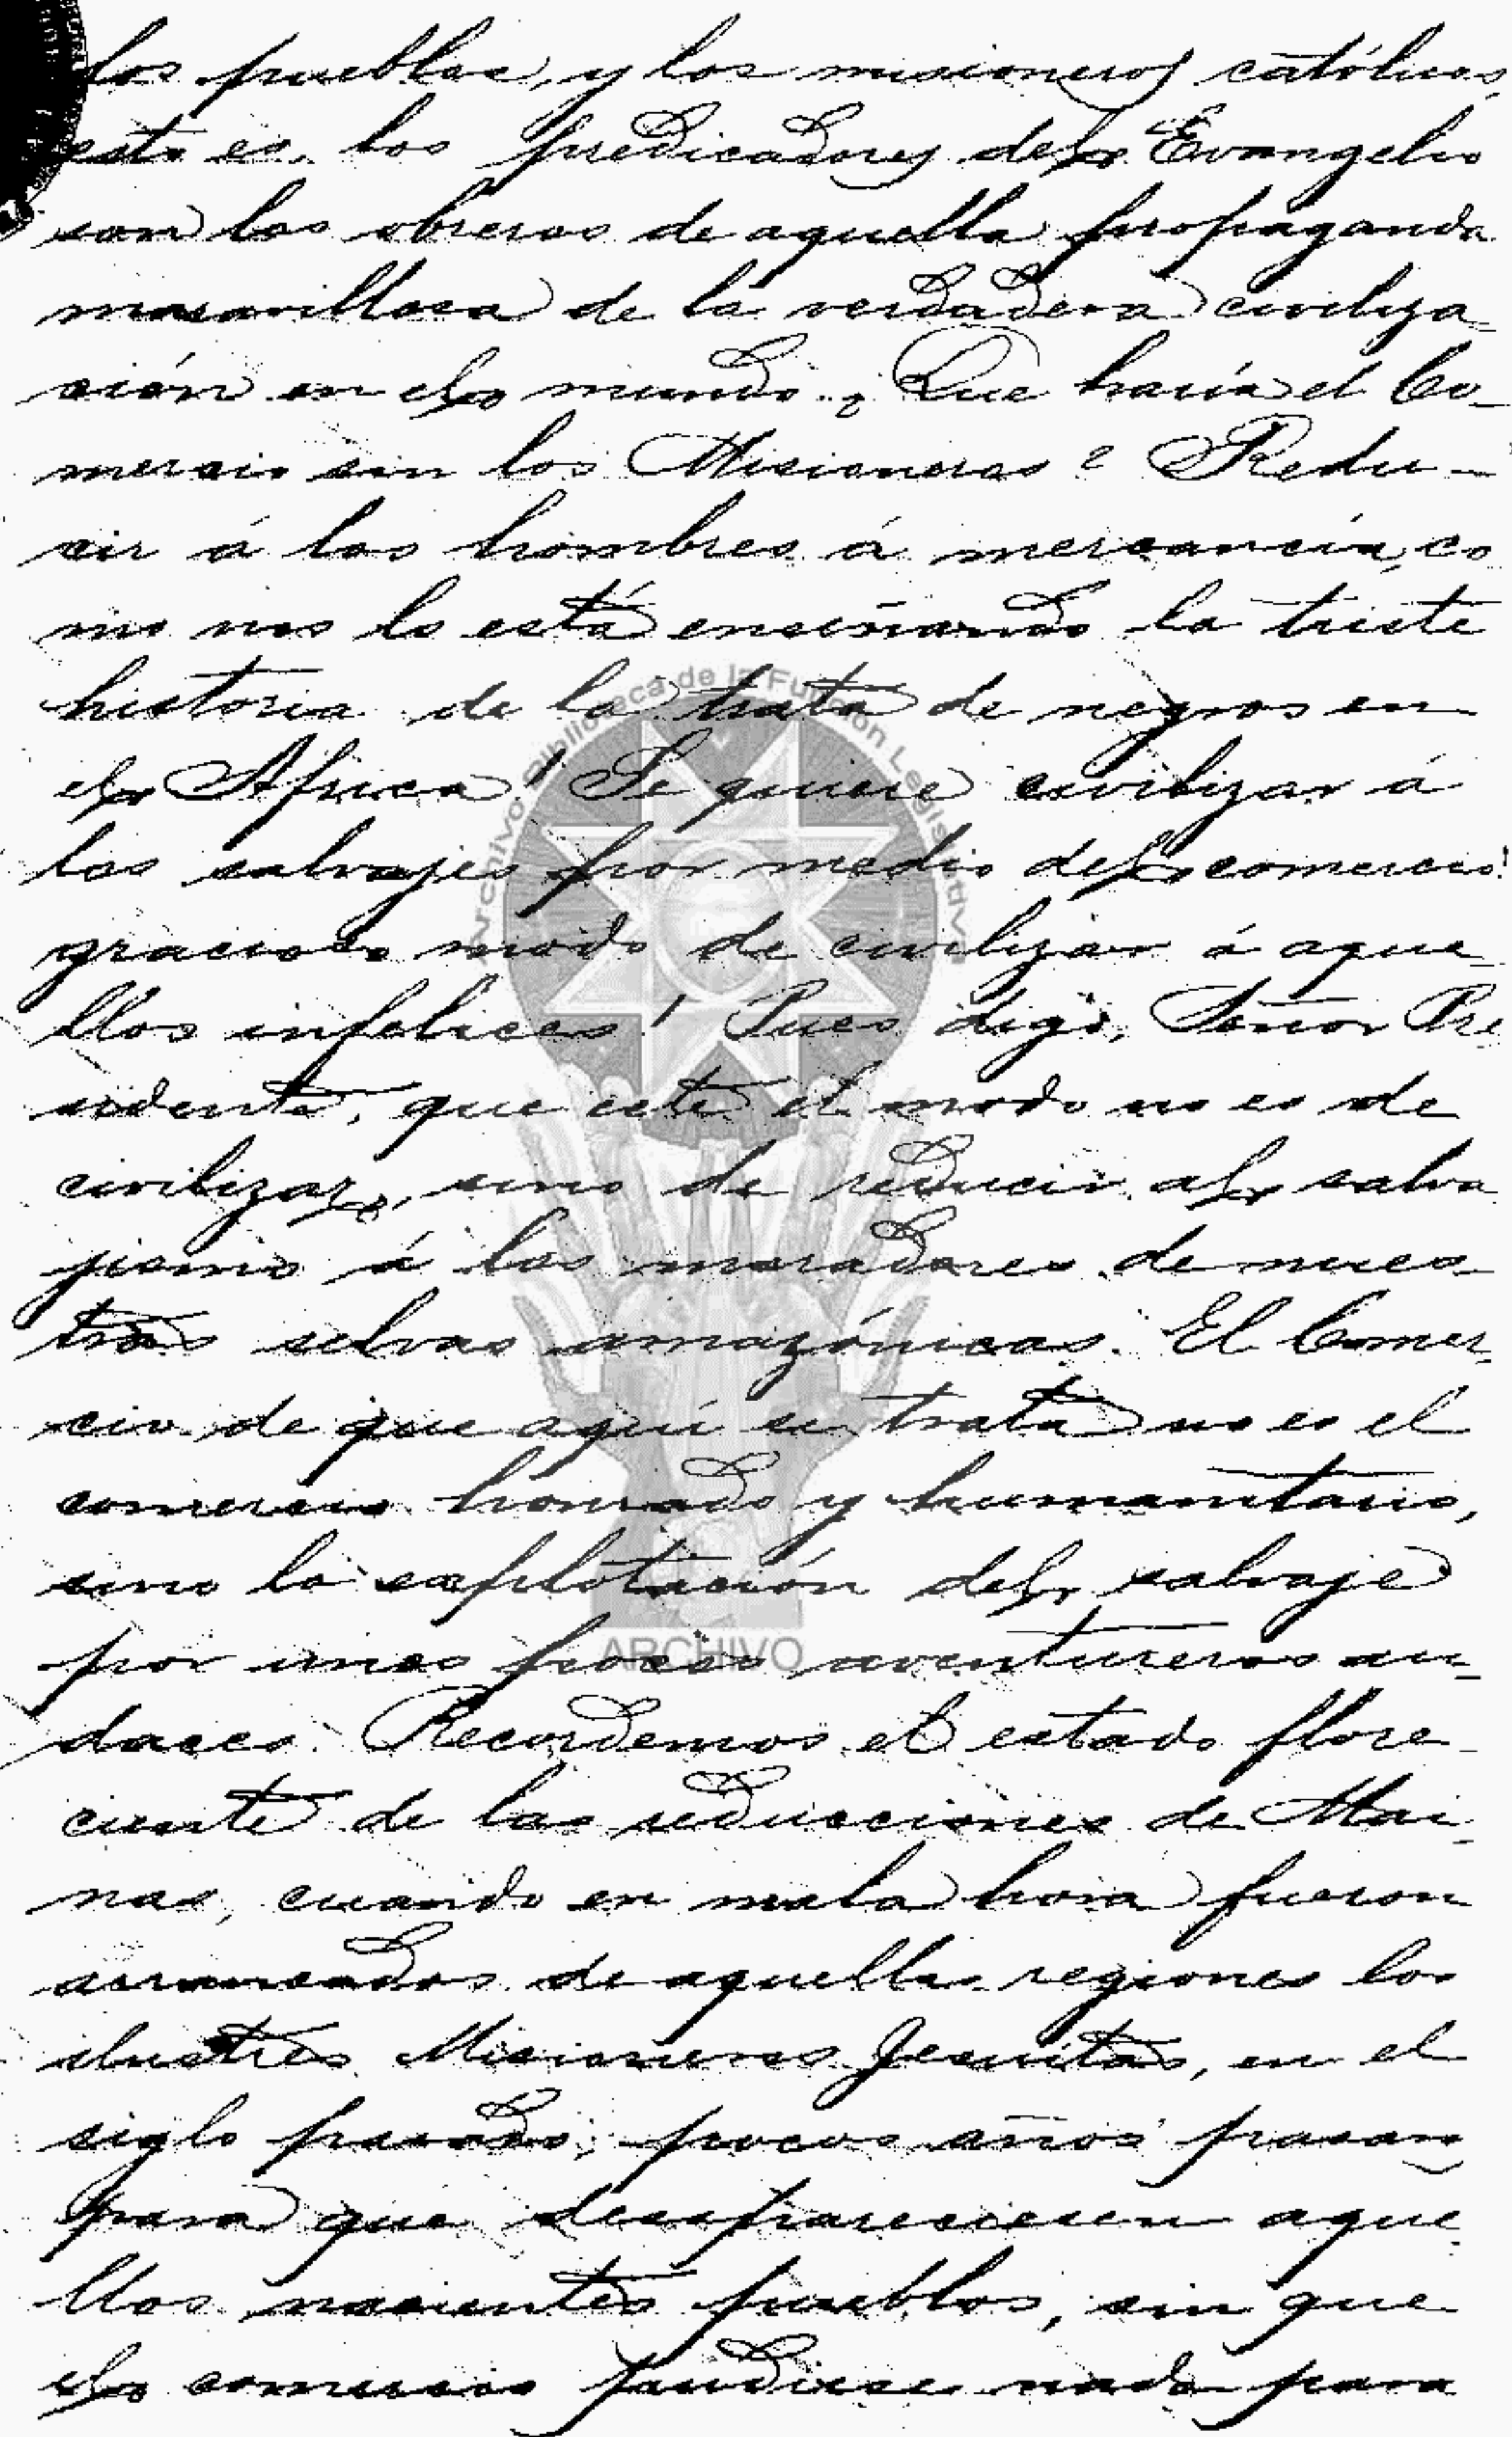 los pueblos, y los misioneros católicos,
esto es los predicadores del Evangelio
son los obreros de aquella propaganda
maravillosa de la verdadera civiliza-
ción en el mundo. ¿Que haría el Co-
mercio sin los Misioneros? Redu-
cir á los hombres á mercancía, co
mo nos lo está enseñando la triste
historia de la trata de negros en
el Africa! Se quiere civilizar á
los salvajes por medio del comercio!
gracioso modo de civilizar á aque-
llos infelices! Pues digo, Señor Pre
sidente, que este el modo no es de
civilizar, sino de reducir al salva
jismo á los moradores de nues-
tras selvas amazónicas. El Comer-
cio de que aquí se trata no es el
comercio honrado y humanitario,
sino la explotación del salvaje
por unos pocos aventureros au-
daces. Recordemos el estado flore-
ciente de las reducciones de Mai-
nas, cuando en mala hora fueron
arrancados de aquellas regiones los
ilustres Misioneros Jesuitas, en el
siglo pasado; pocos años pasan
para que desapareciesen aque-
llos nacientes pueblos, sin que
el comercio pudiese nada para
Archivo Biblioteca de la Función Legislativa
ARCHIVO